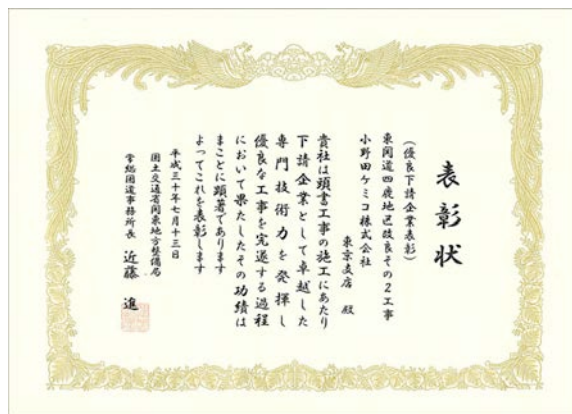 表彰状
(優良下請企業表彰)
東関道四鹿地区改良その2工事
小野田ケミコ株式会社
東京支店 殿
貴社は頭書工事の施工にあたり
下請企業として卓越した
専門技術力を発揮し
優良な工事を完遂する過程
において果たしたその功績は
まことに顕著であります
よってこれを表彰します
平成三十年七月十三日
国土交通省関東地方整備局
常総国道事務所長 近藤 進